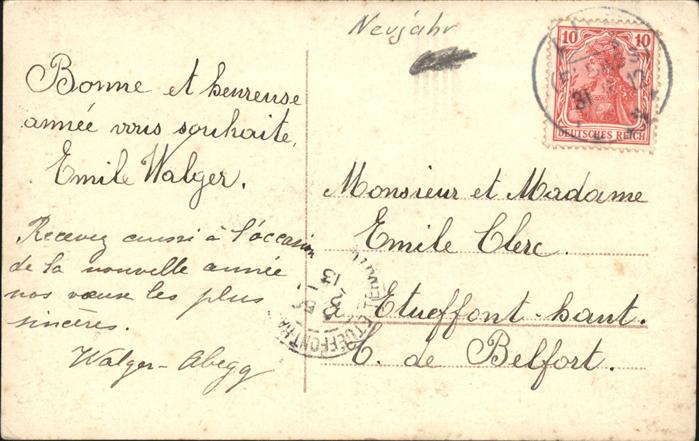 Neujahr
10 10
DEUTSCHES REICH
Bonne et heureuse
année vous souhaite,
Emile Walger.
Recevez aussi à l'occasion
de la nouvelle année
nos vœux les plus
sincères.
Walger-Abegg
Monsieur et Madame
Emile Clerc.
Etueffont-haut.
T. de Belfort.
ETUEFFONT